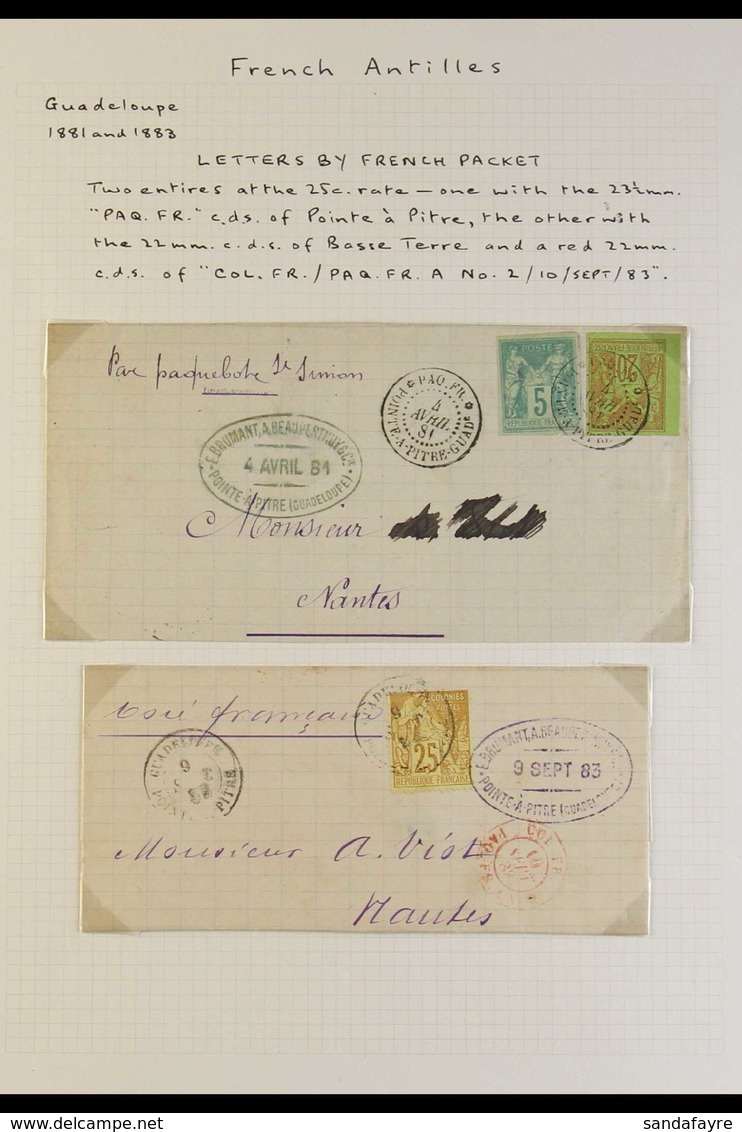 French Antilles
Guadeloupe
1881 and 1883
LETTERS BY FRENCH PACKET
Two entires at the 25c. rate — one with the 23½mm.
"PAQ. FR." c.d.s. of Pointe à Pitre, the other with
the 22mm. c.d.s. of Basse Terre and a red 22mm.
c.d.s. of "COL. FR./PAQ. FR. A No. 2/10/SEPT/83".
Par paquebote St Simon
PAQ. FR.
4
AVRIL
81
POINTE-A-PITRE-GUAD
POSTE
5
RÉPUBLIQUE
20
AVRIL
E. BRUMANT, A. BEAUPERTHUY & Cie
4 AVRIL 81
POINTE-À-PITRE (GUADELOUPE)
Monsieur
Nantes
Voie française
GUADELOUPE
9
PITRE
COLONIES
POSTES
25
RÉPUBLIQUE FRANÇAISE
E. BRUMANT, A.
9 SEPT 83
POINTE-À-PITRE (GUADELOUPE)
COL. FR.
10
Monsieur A. Viot
Nantes
sandafayre